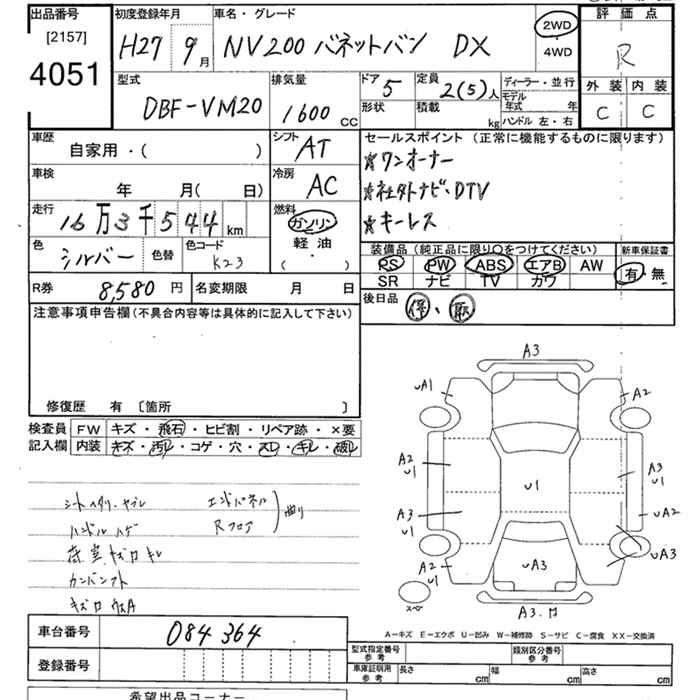 出品番号 初度登録年月 車名・グレード 2WD 評価点
[2157] H27 9月 NV200 バネットバン DX ・ R
4051 4WD
型式 排気量 ドア 5 定員 2(5)人 ディーラー・並行 外装 内装
DBF-VM20 1600 CC 形状 積載 kg モデル年式 年 C C
ハンドル 左・右
車歴 自家用・( ) シフト AT セールスポイント (正常に機能するものに限ります)
☆ワンオーナー
車検 年 月( 日) 冷房 AC ☆社外ナビ・DTV
走行 16万3千544km 燃料 ガソリン ☆キーレス
軽油
( ・ )
色 シルバー 色替 色コード K23 装備品 (純正品に限り○をつけてください) 新車保証書
PS PW ABS エアB AW 有・無
SR ナビ TV カワ
R券 8,580円 名変期限 月 日 後日品 保、取
注意事項申告欄 (不具合内容等は具体的に記入して下さい)
修復歴 有 〔箇所 〕
検査員 FW キズ・飛石・ヒビ割・リペア跡・×要
記入欄 内装 キズ・汚レ・コゲ・穴・スレ・キレ・破レ
シートヘタリ・ヤブレ エンドパネル 曲り
ハンドルハゲ Rフロア
荷室キズロキレ
カンバンフト
A3
υA1 A2
A2 υ1 υ1 A3 υ1
A3 υ1 υA2
A2 υ1 υA3 υA3
スペ A3.ロ
A-キズ E-エクボ U-凹み W-補修跡 S-サビ C-腐食 XX-交換済
車台番号 084364
登録番号
型式指定番号 参考 類別区分番号 参考
車庫証明用 参考 長さ cm 幅 cm 高さ cm
希望出品コーナー